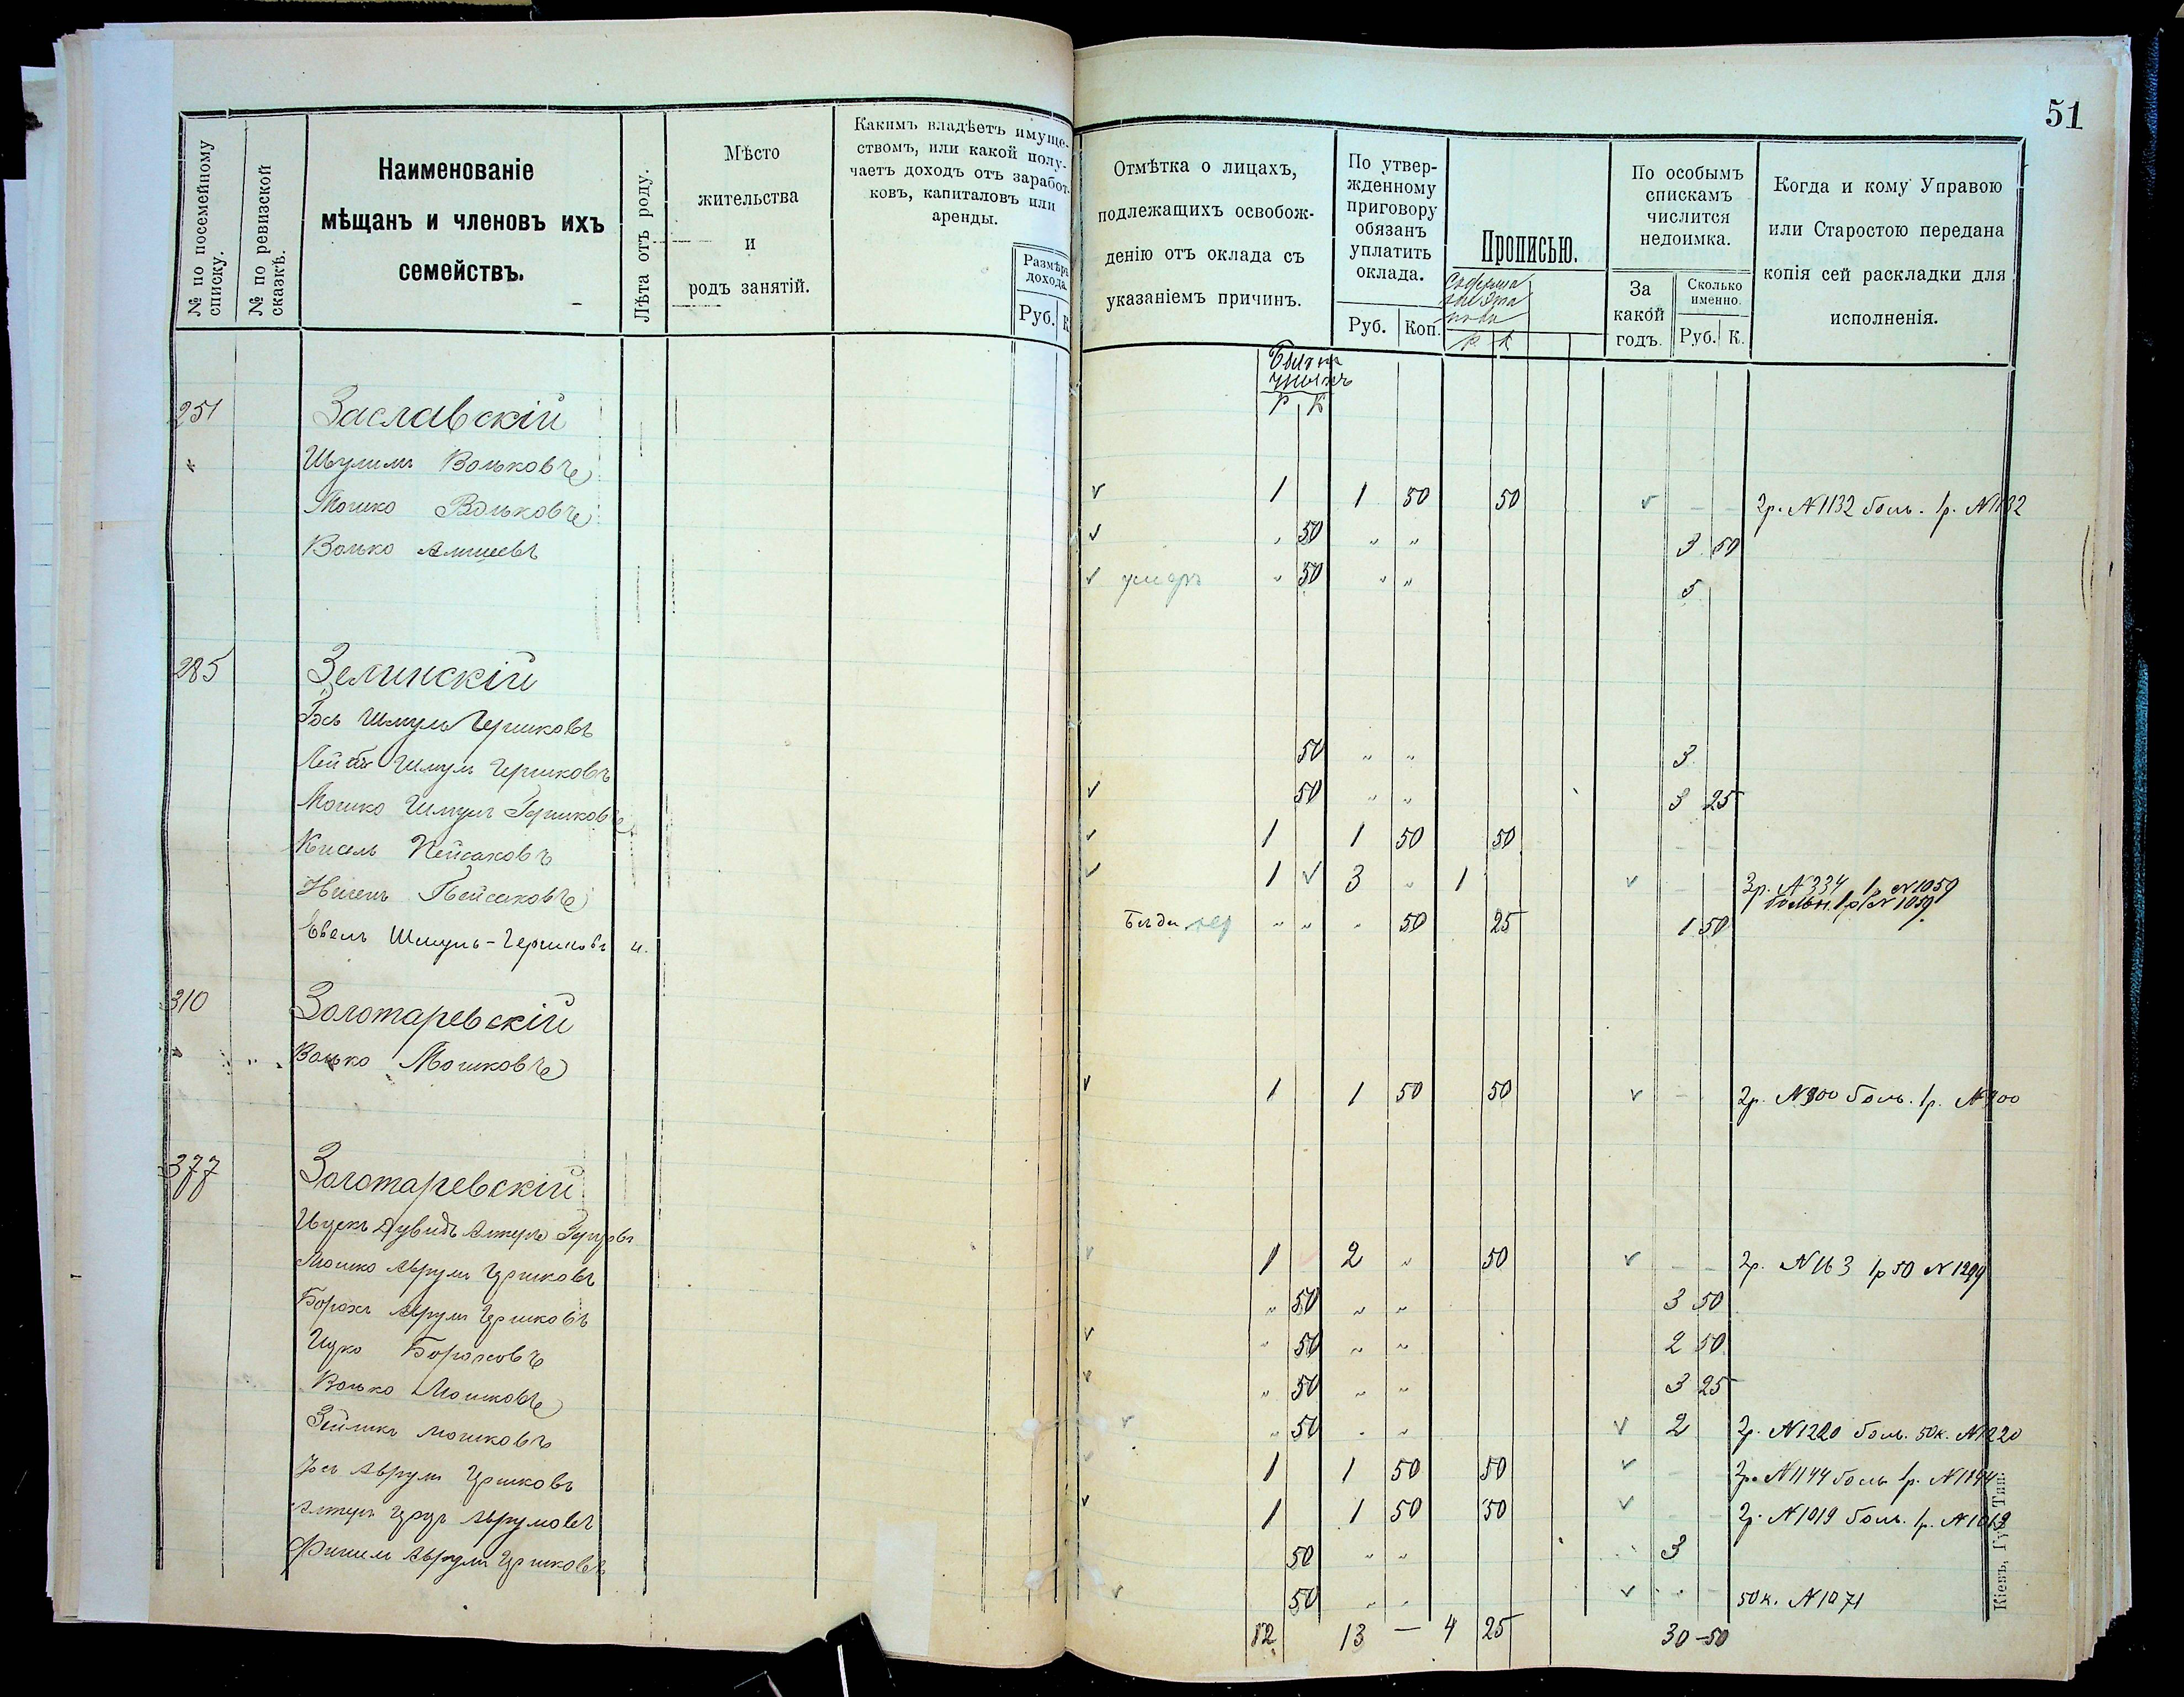 51
№ по посемейному списку.
№ по ревизской сказкѣ.
Наименованіе
мѣщанъ и членовъ ихъ
семействъ.
Лѣта отъ роду.
Мѣсто
жительства
и
родъ занятій.
Какимъ владѣетъ имуще-
ствомъ, или какой полу-
чаетъ доходъ отъ заработ-
ковъ, капиталовъ или
аренды.
Размѣръ
дохода
Руб. К
Отмѣтка о лицахъ,
подлежащихъ освобож-
денію отъ оклада съ
указаніемъ причинъ.
По утвер-
жденному
приговору
обязанъ
уплатить
оклада.
Руб. Коп.
Прописью.
Р К
По особымъ
спискамъ
числится
недоимка.
За
какой
годъ.
Сколько
именно.
Руб. К.
Когда и кому Управою
или Старостою передана
копія сей раскладки для
исполненія.
Р К
251 Заславскій
Шулимъ Вольковъ 1 1 50 50 2р. №1132 боль. 1р. №1132
Мошко Вольковъ 50 " " 3 50
Волько умеръ " 50 " " 5
285 Зелинскій
Іось Шмуль Гершковъ 50 " " 3
Лейба Шмул Гершковъ 50 " " 3 25
Мошко Шмул Гершковъ 1 1 50 50
Кисель Пейсаховъ 1 3 " 1 3р. №334 1р №1059
больн. 1р №1059
Пейсаховъ " " " 50 25 1 50
Евель Шмуль-Гершковъ
310 Золотаревскій
Волько Мошковъ 1 1 50 50 2р. №900 боль. 1р. №900
377 Золотаревскій
Ицекъ Дувидъ Алтеръ 1 2 " 50 2р. №163 1р 50 №1299
Мошко Аврумъ Гершковъ " 50 " " 3 50
Борохъ Аврумъ Гершковъ " 50 " " 2 50
Ицко Бороховъ " 50 " " 3 25
Волько Мошковъ " 50 " " 2 2р. №1220 боль. 50к. №1220
Зейликъ Мошковъ 1 1 50 50 2р. №1144 боль 1р. №1144
Іось Аврумъ Гершковъ 1 1 50 50 2р. №1019 боль. 1р. №1019
Алтеръ Аврумовъ 50 " " 3
Фишель Аврумъ Гершковъ 50 " " 50к. №1071
12 13 — 4 25 30-50
Кіевъ, Губ. Тип.